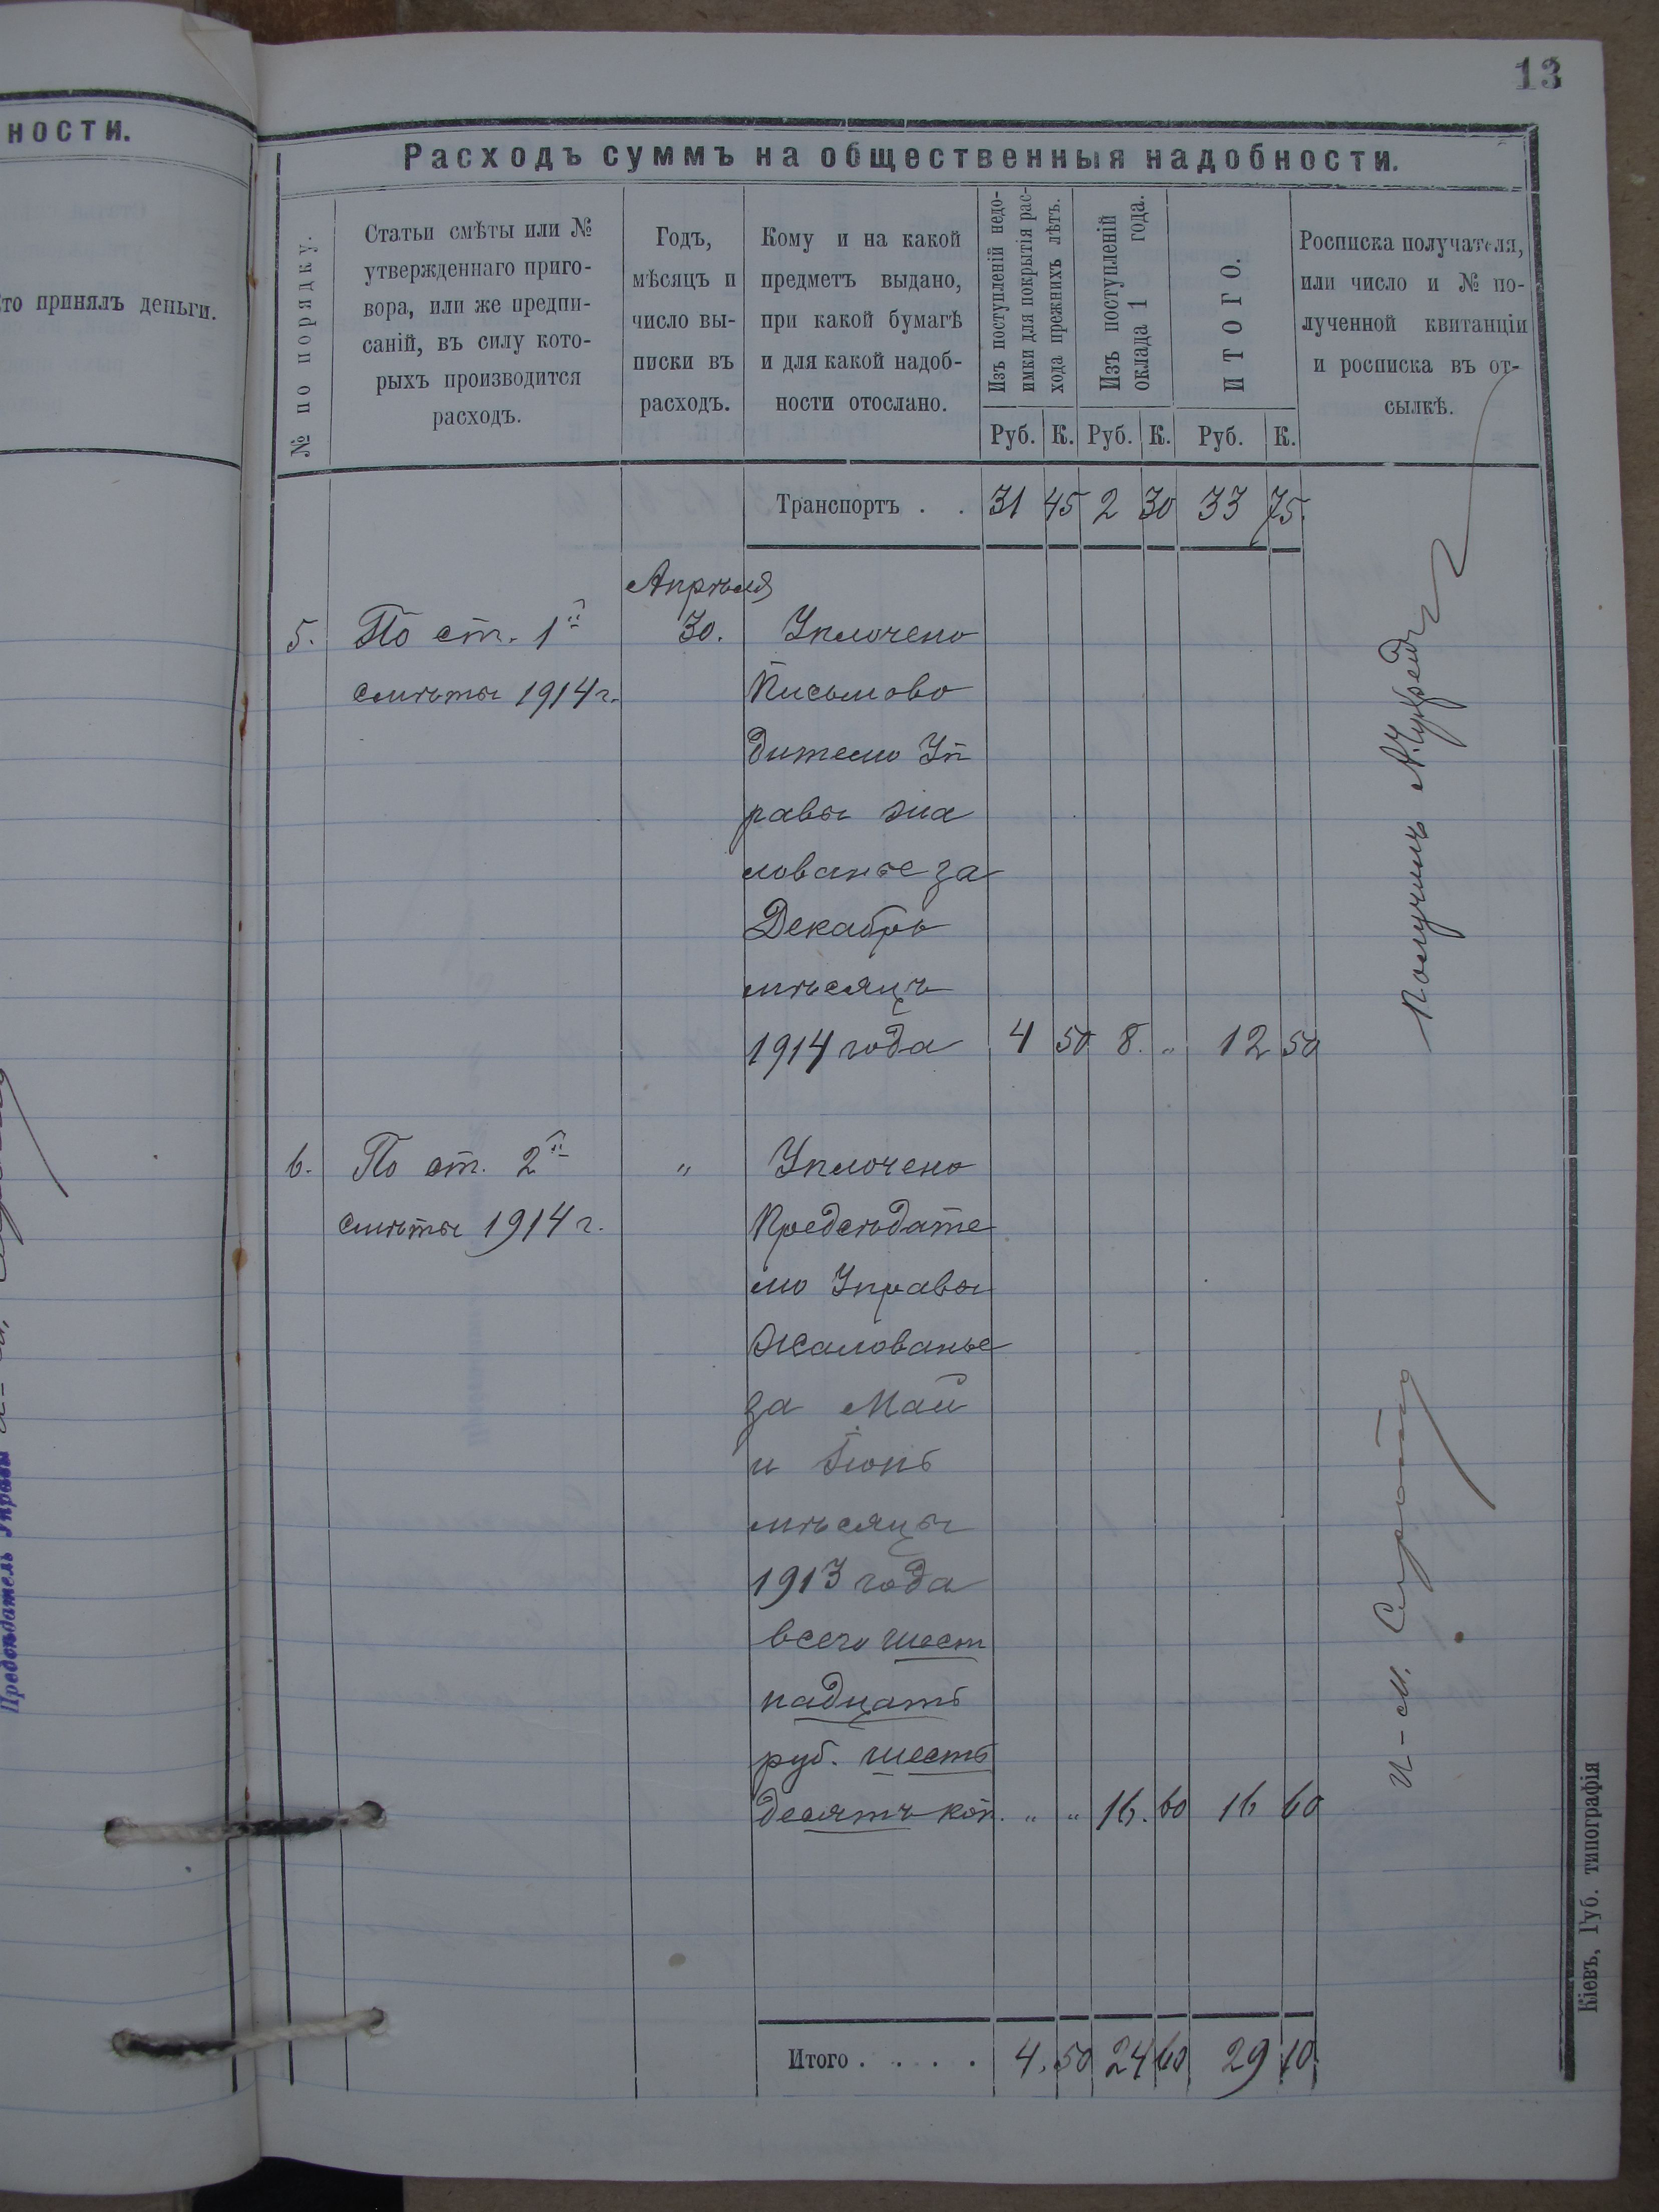 13
ности.
то принялъ деньги.
Расходъ суммъ на общественныя надобности.
№ по порядку.
Статьи смѣты или №
утвержденнаго приго-
вора, или же предпи-
саній, въ силу кото-
рыхъ производится
расходъ.
Годъ,
мѣсяцъ и
число вы-
писки въ
расходъ.
Кому и на какой
предметъ выдано,
при какой бумагѣ
и для какой надоб-
ности отослано.
Изъ поступленій недо-
имки для покрытія рас-
хода прежнихъ лѣтъ.
Изъ поступленій
оклада 1 года.
ИТОГО.
Росписка получателя,
или число и № по-
лученной квитанціи
и росписка въ от-
сылкѣ.
Руб. К. Руб. К. Руб. К.
Транспортъ . . 31 45 2 30 33 75.
Апрѣля
5. По ст. 1й 30. Уплочено
смѣты 1914 г. Письмово
дителю Уп
равы жа
лованье за
Декабрь
мѣсяцъ
1914 года 4 50 8. „ 12 50
Получилъ
6. По ст. 2й „ Уплочено
смѣты 1914 г. Предсѣдате
лю Управы
Жалованье
за Май
и Іюнь
мѣсяцы
1913 года
всего шест
надцать
руб. шесть
десятъ коп. „ „ 16. 60 16 60
И-м.
Итого . . . . 4. 50 24 60 29 10.
Предсѣдатель Управы
Кіевъ, Губ. типографія